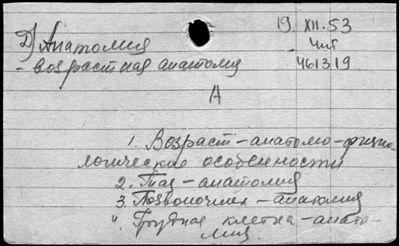 19. XII.53
Д) Анатомия
Чит
- возрастная анатомия
461319
А
1. Возраст-анатомо-физио-
логические особенности
2. Таз-анатомия
3. Позвоночник-анатомия
4. Грудная клетка-анато-
мия